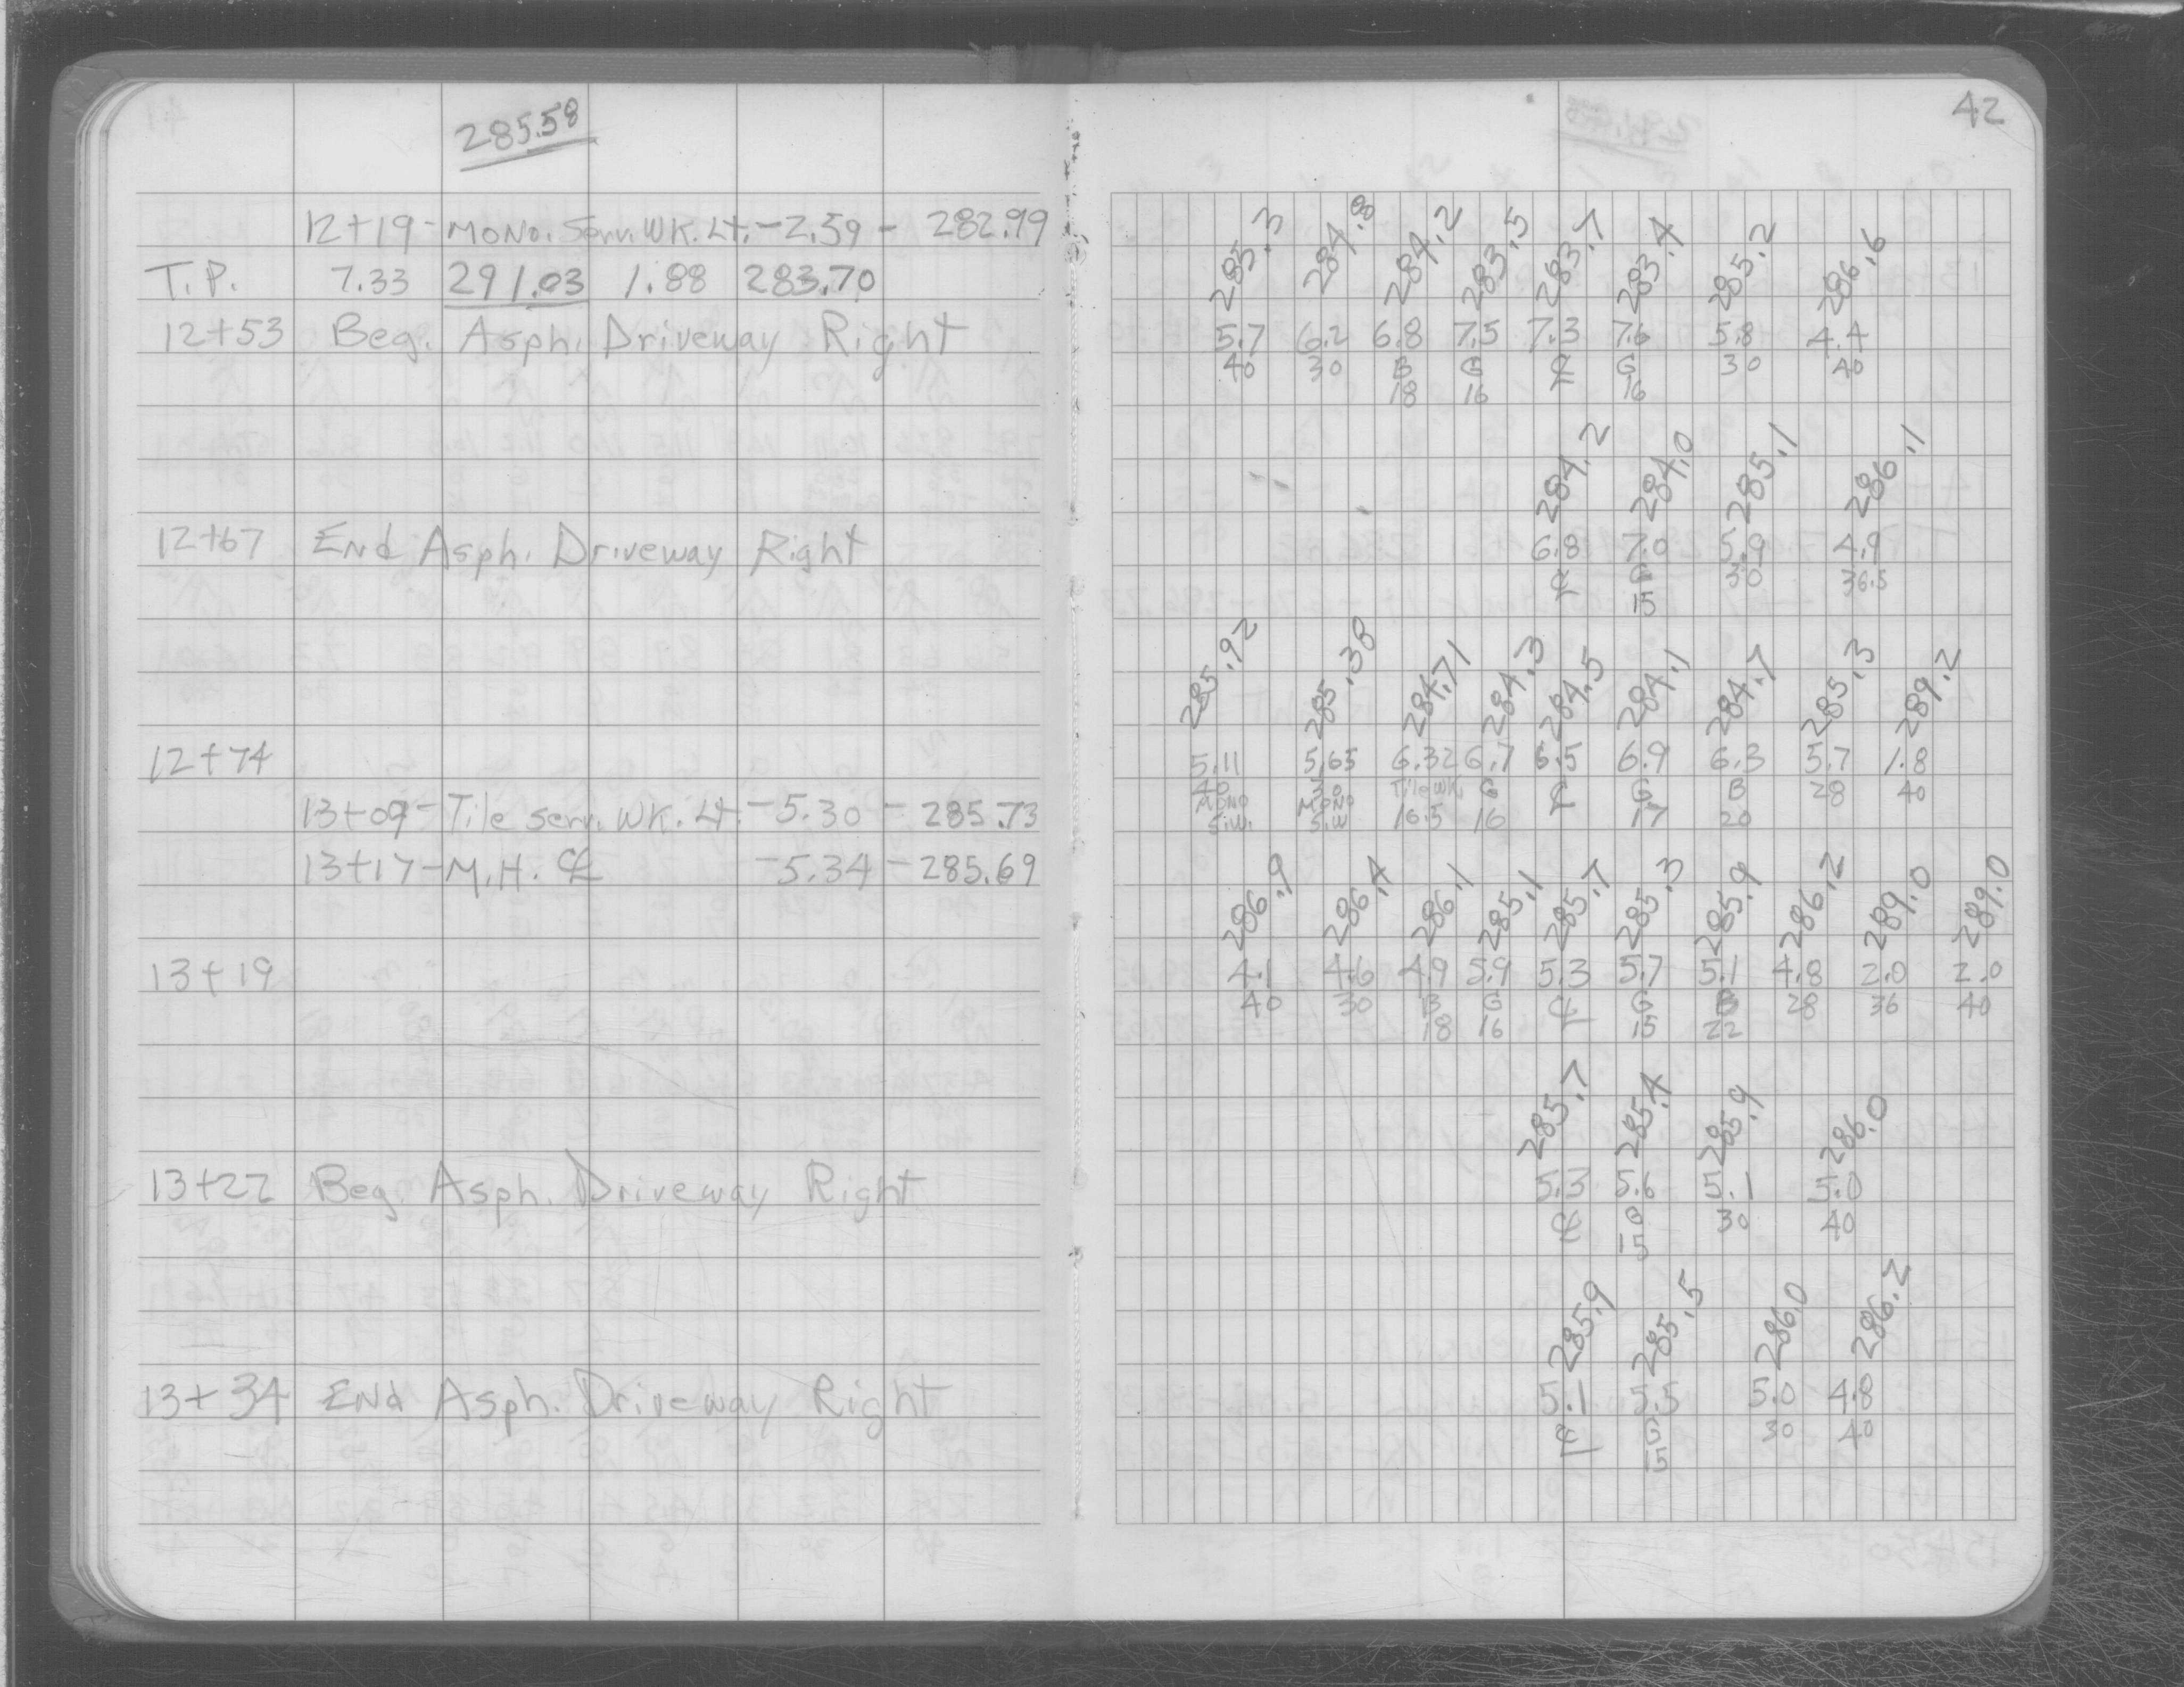 285.58
12+19 - MONO. Serv. WK. Lt. - 2.59 - 282.99
T.P. 7.33 291.03 1.88 283.70
12+53 Beg. Asph. Driveway Right
12+67 End Asph. Driveway Right
12+74
13+09 - Tile serv. WK. Lt. - 5.30 - 285.73
13+17 - M.H. ℄ - 5.34 - 285.69
13+19
13+22 Beg. Asph. Driveway Right
13+34 End Asph. Driveway Right
42
285.3 284.8 284.2 283.5 283.7 283.4 285.2 286.6
5.7 6.2 6.8 7.5 7.3 7.6 5.8 4.4
40 30 B G ℄ G 30 40
18 16 16
284.2 284.0 285.1 286.1
6.8 7.0 5.9 4.9
℄ G 30 36.5
15
285.92 285.38 284.71 284.3 284.5 284.1 284.7 285.3 289.2
5.11 5.65 6.32 6.7 6.5 6.9 6.3 5.7 1.8
40 30 Tile WK. G ℄ G B 28 40
MONO MONO 16.5 16 17 20
S.W. S.W
286.9 286.4 286.1 285.1 285.7 285.3 285.9 286.2 289.0 289.0
4.1 4.6 4.9 5.9 5.3 5.7 5.1 4.8 2.0 2.0
40 30 B G ℄ G B 28 36 40
18 16 15 22
285.7 285.4 285.9 286.0
5.3 5.6 5.1 5.0
℄ G 30 40
15
285.9 285.5 286.0 286.2
5.1 5.5 5.0 4.8
℄ G 30 40
15